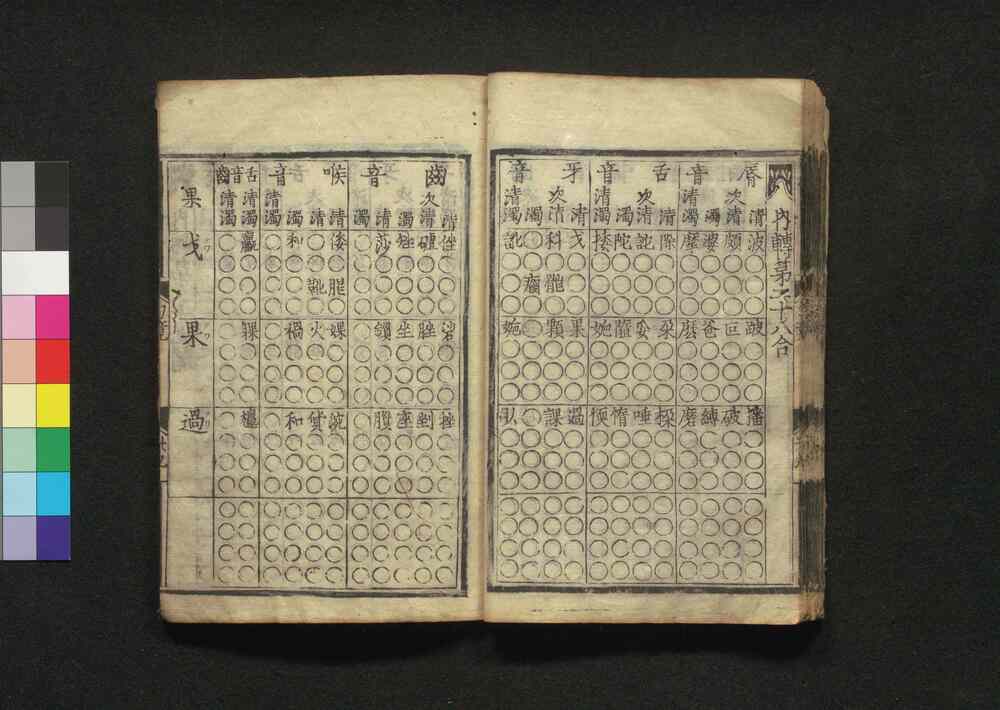 內轉第二十八合
脣音 舌音 牙音
清 次清 濁 清濁 清 次清 濁 清濁 清 次清 濁 清濁
波 頗 婆 摩 除 詑 陀 捼 戈 科 〇 訛
〇 〇 〇 〇 〇 〇 〇 〇 〇 〇 〇 〇
〇 〇 〇 〇 〇 〇 〇 〇 〇 䯢 瘸 〇
〇 〇 〇 〇 〇 〇 〇 〇 〇 〇 〇 〇
跛 叵 爸 麼 朶 妥 果 顆 〇
〇 〇 〇 〇 〇 〇 〇 〇 〇 〇 〇 〇
〇 〇 〇 〇 〇 〇 〇 〇 〇 〇 〇 〇
〇 〇 〇 〇 〇 〇 〇 〇 〇 〇 〇 〇
播 破 縛 磨 唾 惰 愞 過 課 〇 臥
〇 〇 〇 〇 〇 〇 〇 〇 〇 〇 〇 〇
〇 〇 〇 〇 〇 〇 〇 〇 〇 〇 〇 〇
〇 〇 〇 〇 〇 〇 〇 〇 〇 〇 〇 〇
〇 〇 〇 〇 〇 〇 〇 〇 〇 〇 〇 〇
〇 〇 〇 〇 〇 〇 〇 〇 〇 〇 〇 〇
〇 〇 〇 〇 〇 〇 〇 〇 〇 〇 〇 〇
〇 〇 〇 〇 〇 〇 〇 〇 〇 〇 〇 〇
齒音 喉音 舌齒音
清 次清 濁 清 濁 清 清 濁 清濁 清濁 清濁
莎 〇 倭 和 〇 〇
〇 〇 〇 〇 〇 〇 〇 〇 〇 〇 〇
〇 〇 〇 〇 〇 靴 〇 〇 〇 〇
〇 〇 〇 〇 〇 〇 〇 〇 〇 〇 〇
坐 鎖 〇 火 禍 〇 〇
〇 〇 〇 〇 〇 〇 〇 〇 〇 〇 〇
〇 〇 〇 〇 〇 〇 〇 〇 〇 〇 〇
〇 〇 〇 〇 〇 〇 〇 〇 〇 〇 〇
挫 剉 座 〇 貨 和 〇 〇
〇 〇 〇 〇 〇 〇 〇 〇 〇 〇 〇
〇 〇 〇 〇 〇 〇 〇 〇 〇 〇 〇
〇 〇 〇 〇 〇 〇 〇 〇 〇 〇 〇
〇 〇 〇 〇 〇 〇 〇 〇 〇 〇 〇
〇 〇 〇 〇 〇 〇 〇 〇 〇 〇 〇
〇 〇 〇 〇 〇 〇 〇 〇 〇 〇 〇
〇 〇 〇 〇 〇 〇 〇 〇 〇 〇 〇
果
戈
果
過